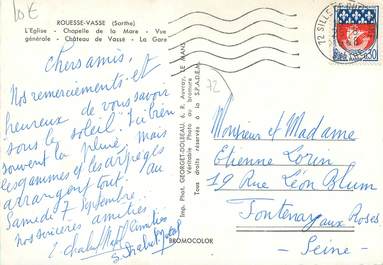 10€
ROUESSE-VASSE (Sarthe)
L'Eglise - Chapelle de la Mare - Vue
générale - Château de Vasse - La Gare
Chers amis,
Nos remerciements et
heureux de vous savoir
sous le soleil. Ici bien
souvent la pluie, mais
les gammes et les arpèges
arrangent tout. Au
Samedi 7 Septembre.
nos sincères amitiés
Imp. Phot. GEORGET-DOLBEAU, 6, R. Auvray, LE MANS
Véritable Photo au bromure
Tous droits réservés à la S.P.A.D.E.M.
BROMOCOLOR
72
72 SILLE
Monsieur et Madame
Etienne Lorin
19 Rue Léon Blum
Fontenay aux Roses
- Seine -